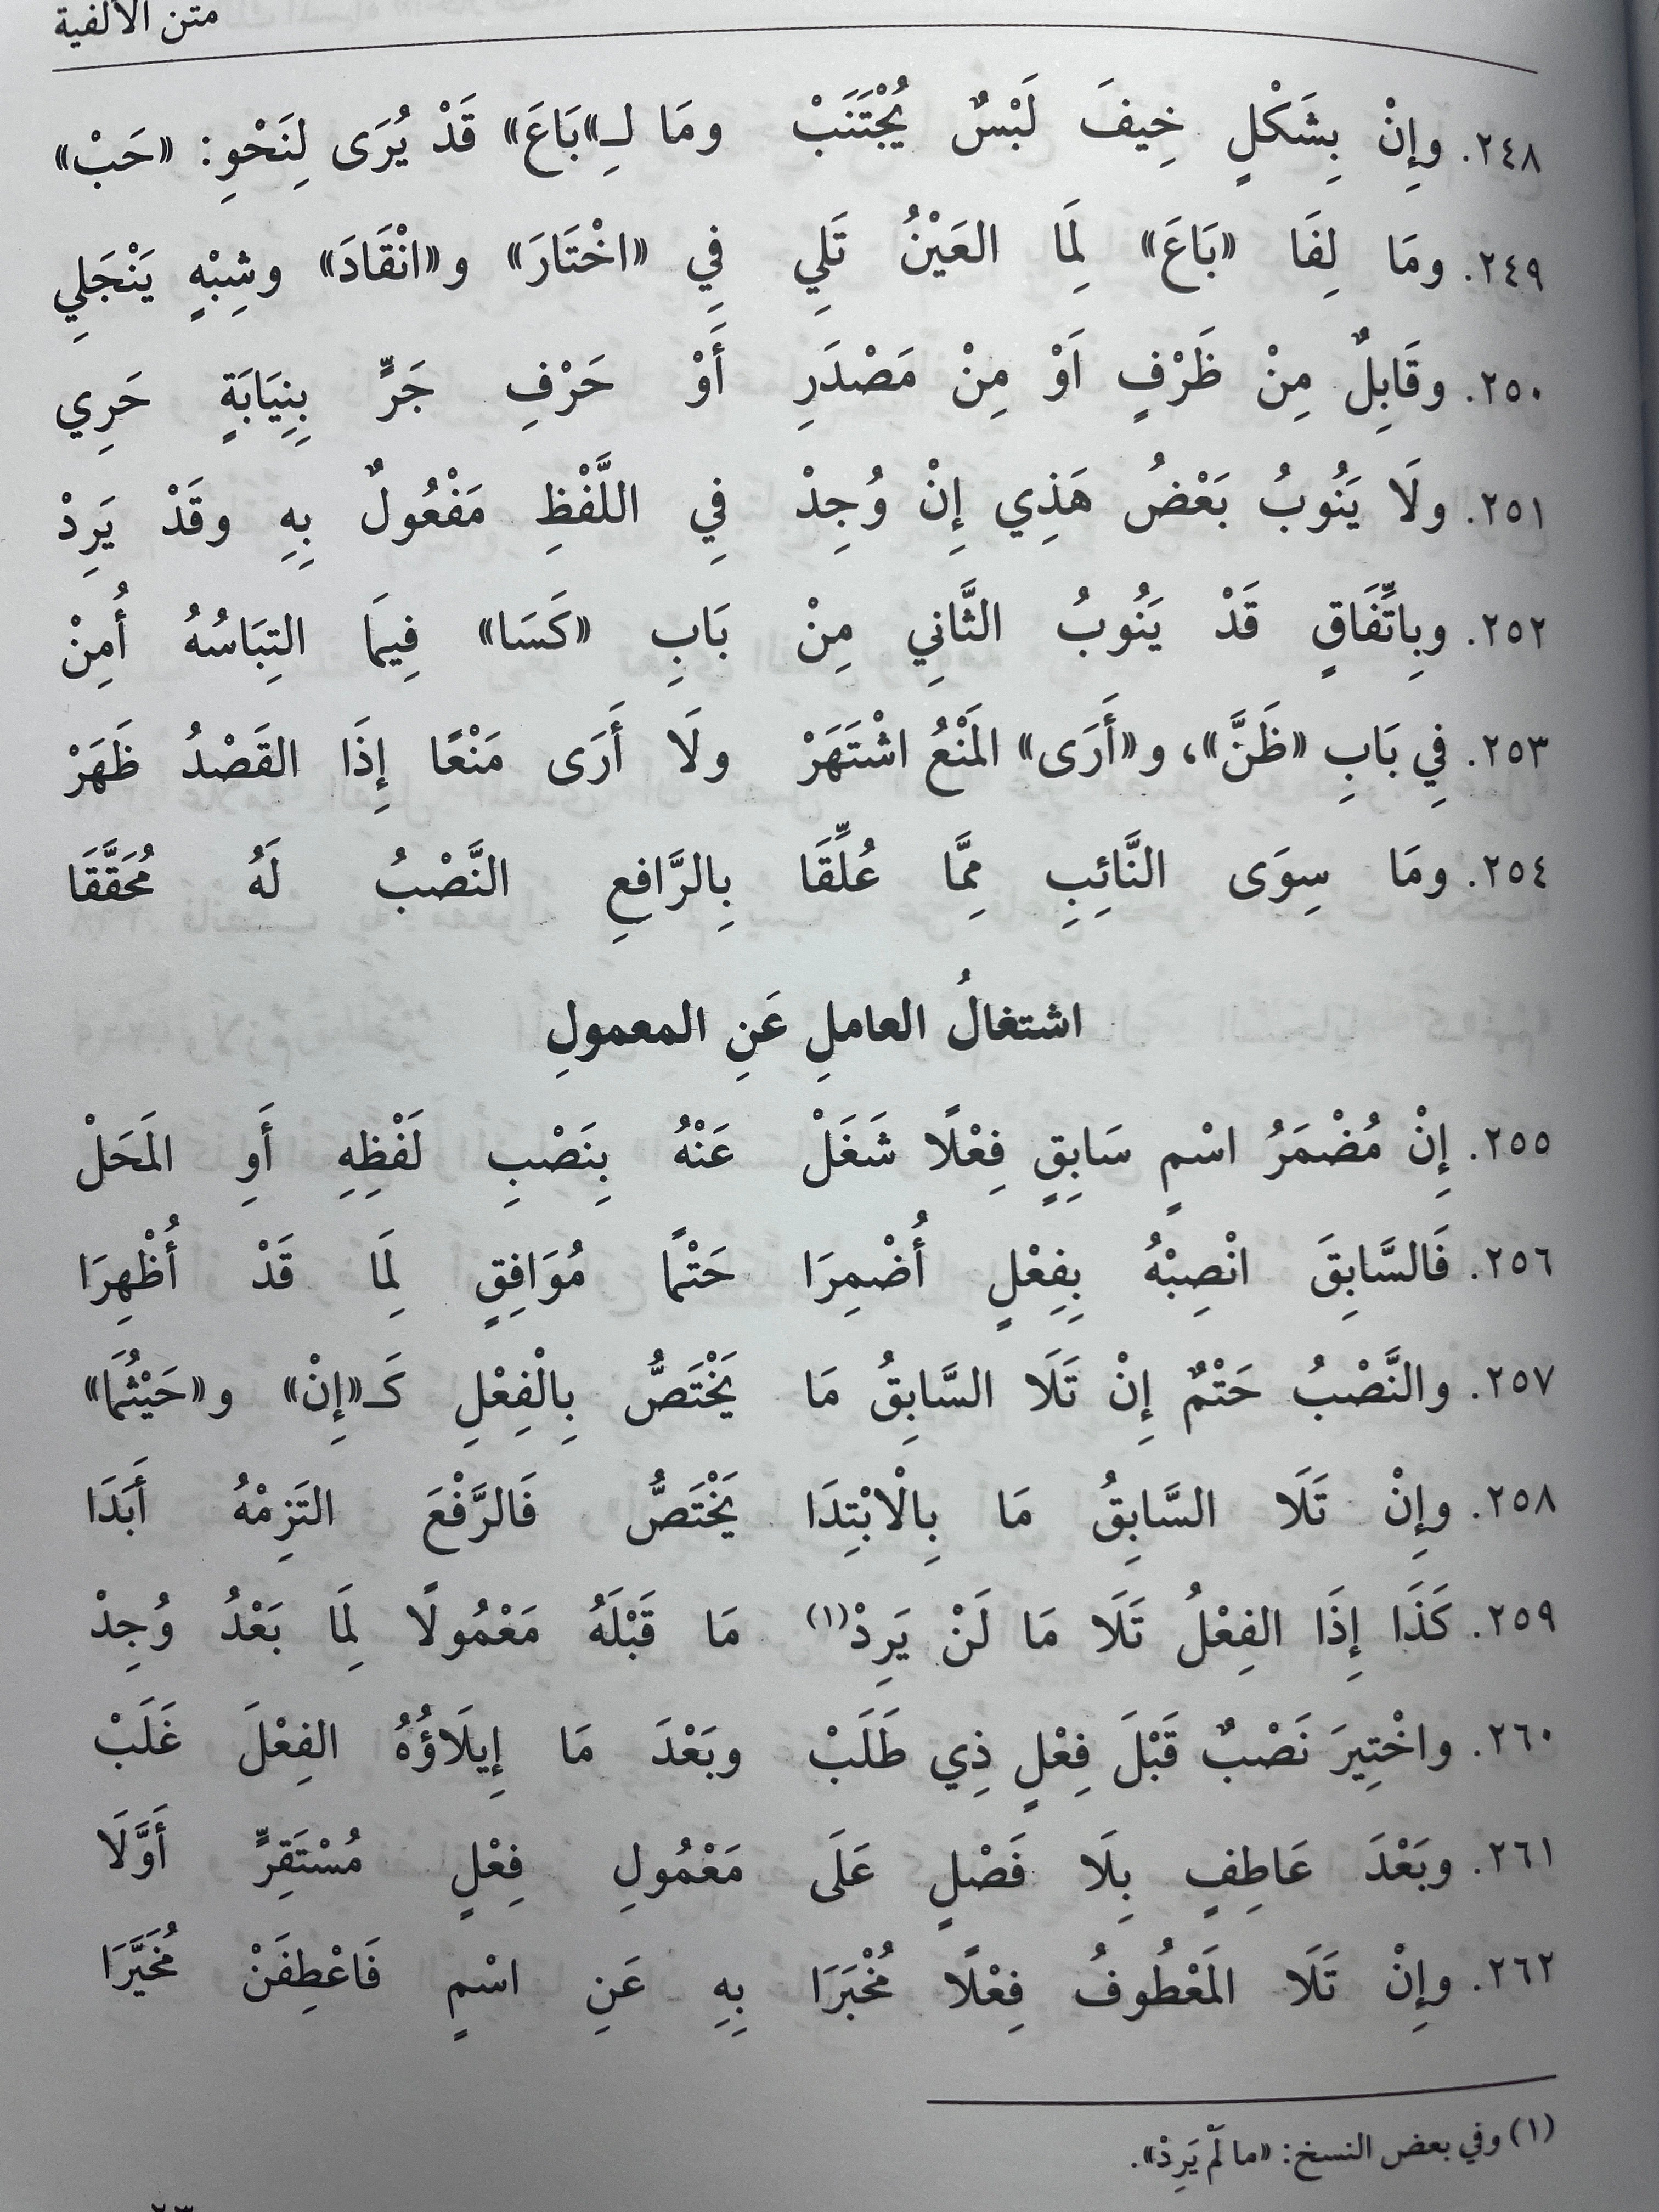 متن الألفية
٢٤٨. وإِنْ بِشَكْلٍ خِيفَ لَبْسٌ يُجْتَنَبْ ومَا لِـ«بَاعَ» قَدْ يُرَى لِنَحْوِ: «حَبْ»
٢٤٩. ومَا لِفَا «بَاعَ» لِمَا العَيْنُ تَلِي فِي «اخْتَارَ» و«انْقَادَ» وشِبْهٍ يَنْجَلِي
٢٥٠. وقَابِلٌ مِنْ ظَرْفٍ اَوْ مِنْ مَصْدَرِ أَوْ حَرْفِ جَرٍّ بِنِيَابَةٍ حَرِي
٢٥١. ولَا يَنُوبُ بَعْضُ هَذِي إِنْ وُجِدْ فِي اللَّفْظِ مَفْعُولٌ بِهِ وقَدْ يَرِدْ
٢٥٢. وبِاتِّفَاقٍ قَدْ يَنُوبُ الثَّانِي مِنْ بَابِ «كَسَا» فِيمَا التِبَاسُهُ أُمِنْ
٢٥٣. فِي بَابِ «ظَنَّ»، و«أَرَى» المَنْعُ اشْتَهَرْ ولَا أَرَى مَنْعًا إِذَا القَصْدُ ظَهَرْ
٢٥٤. ومَا سِوَى النَّائِبِ مِمَّا عُلِّقَا بِالرَّافعِ النَّصْبُ لَهُ مُحَقَّقَا
اشتغالُ العاملِ عَنِ المعمولِ
٢٥٥. إِنْ مُضْمَرُ اسْمٍ سَابِقٍ فِعْلًا شَغَلْ عَنْهُ بِنَصْبِ لَفْظِهِ أَوِ المَحَلْ
٢٥٦. فَالسَّابِقَ انْصِبْهُ بِفِعْلٍ أُضْمِرَا حَتْمًا مُوَافِقٍ لِمَا قَدْ أُظْهِرَا
٢٥٧. والنَّصْبُ حَتْمٌ إِنْ تَلَا السَّابِقُ مَا يَخْتَصُّ بِالْفِعْلِ كَـ«إِنْ» و«حَيْثُمَا»
٢٥٨. وإِنْ تَلَا السَّابِقُ مَا بِالْابْتِدَا يَخْتَصُّ فَالرَّفْعَ التَزِمْهُ أَبَدَا
٢٥٩. كَذَا إِذَا الفِعْلُ تَلَا مَا لَنْ يَرِدْ(١) مَا قَبْلَهُ مَعْمُولًا لِمَا بَعْدُ وُجِدْ
٢٦٠. واخْتِيرَ نَصْبٌ قَبْلَ فِعْلٍ ذِي طَلَبْ وبَعْدَ مَا إِيلَاؤُهُ الفِعْلَ غَلَبْ
٢٦١. وبَعْدَ عَاطِفٍ بِلَا فَصْلٍ عَلَى مَعْمُولِ فِعْلٍ مُسْتَقِرٍّ أَوَّلَا
٢٦٢. وإِنْ تَلَا المَعْطُوفُ فِعْلًا مُخْبَرَا بِهِ عَنِ اسْمٍ فَاعْطِفَنْ مُخَيَّرَا
(١) وفي بعض النسخ: «ما لَمْ يَرِدْ».